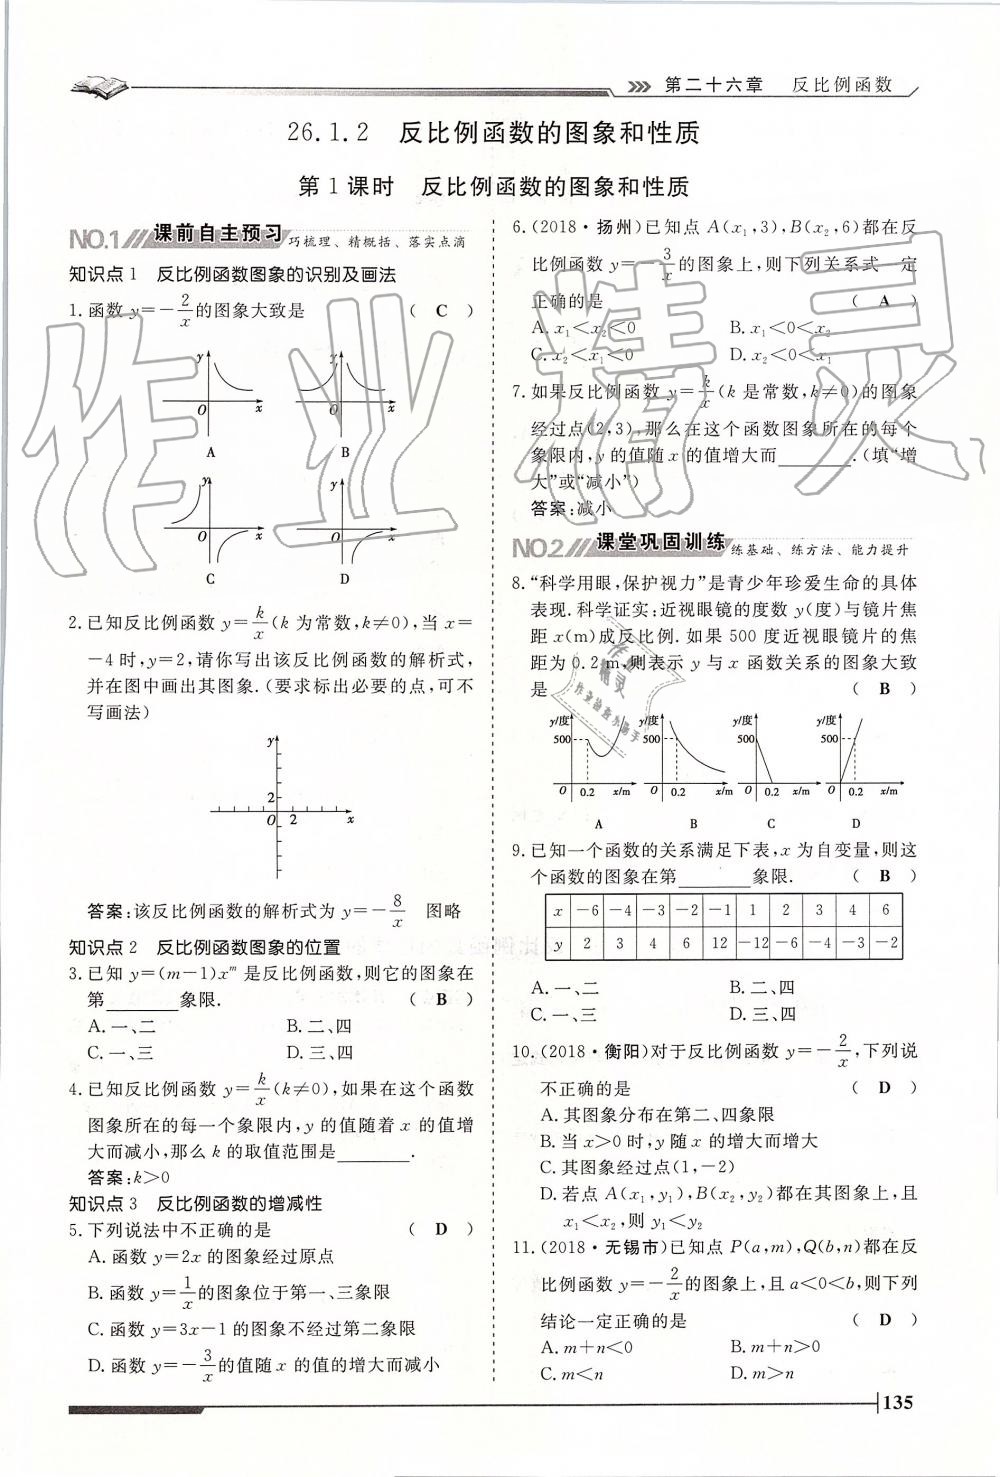 第二十六章 反比例函数
26.1.2 反比例函数的图象和性质
第1课时 反比例函数的图象和性质
NO.1 课前自主预习 巧梳理、精概括、落实点滴
知识点1 反比例函数图象的识别及画法
1.函数 y=-2/x 的图象大致是 ( C )
y O x A
y O x B
y O x C
y O x D
2.已知反比例函数 y=k/x(k 为常数,k≠0),当 x=
-4时,y=2,请你写出该反比例函数的解析式,
并在图中画出其图象.(要求标出必要的点,可不
写画法)
y
2
O 2 x
答案:该反比例函数的解析式为 y=-8/x 图略
知识点2 反比例函数图象的位置
3.已知 y=(m-1)x^m 是反比例函数,则它的图象在
第______象限. ( B )
A.一、二 B.二、四
C.一、三 D.三、四
4.已知反比例函数 y=k/x(k≠0),如果在这个函数
图象所在的每一个象限内,y 的值随着 x 的值增
大而减小,那么 k 的取值范围是______.
答案:k>0
知识点3 反比例函数的增减性
5.下列说法中不正确的是 ( D )
A.函数 y=2x 的图象经过原点
B.函数 y=1/x 的图象位于第一、三象限
C.函数 y=3x-1 的图象不经过第二象限
D.函数 y=-3/x 的值随 x 的值的增大而减小
6.(2018·扬州)已知点 A(x₁,3),B(x₂,6)都在反
比例函数 y=-3/x 的图象上,则下列关系式一定
正确的是 ( A )
A.x₁<x₂<0 B.x₁<0<x₂
C.x₂<x₁<0 D.x₂<0<x₁
7.如果反比例函数 y=k/x(k 是常数,k≠0)的图象
经过点(2,3),那么在这个函数图象所在的每个
象限内,y 的值随 x 的值增大而______.(填“增
大”或“减小”)
答案:减小
NO.2 课堂巩固训练 练基础、练方法、能力提升
8.“科学用眼,保护视力”是青少年珍爱生命的具体
表现.科学证实:近视眼镜的度数 y(度)与镜片焦
距 x(m)成反比例.如果 500 度近视眼镜片的焦
距为 0.2 m,则表示 y 与 x 函数关系的图象大致
是 ( B )
y/度 500 O 0.2 x/m A
y/度 500 O 0.2 x/m B
y/度 500 O 0.2 x/m C
y/度 500 O 0.2 x/m D
9.已知一个函数的关系满足下表,x 为自变量,则这
个函数的图象在第______象限. ( B )
x -6 -4 -3 -2 -1 1 2 3 4 6
y 2 3 4 6 12 -12 -6 -4 -3 -2
A.一、二 B.二、四
C.一、三 D.三、四
10.(2018·衡阳)对于反比例函数 y=-2/x,下列说
不正确的是 ( D )
A.其图象分布在第二、四象限
B.当 x>0 时,y 随 x 的增大而增大
C.其图象经过点(1,-2)
D.若点 A(x₁,y₁),B(x₂,y₂)都在其图象上,且
x₁<x₂,则 y₁<y₂
11.(2018·无锡市)已知点 P(a,m),Q(b,n)都在反
比例函数 y=-2/x 的图象上,且 a<0<b,则下列
结论一定正确的是 ( D )
A.m+n<0 B.m+n>0
C.m<n D.m>n
135
作业精灵